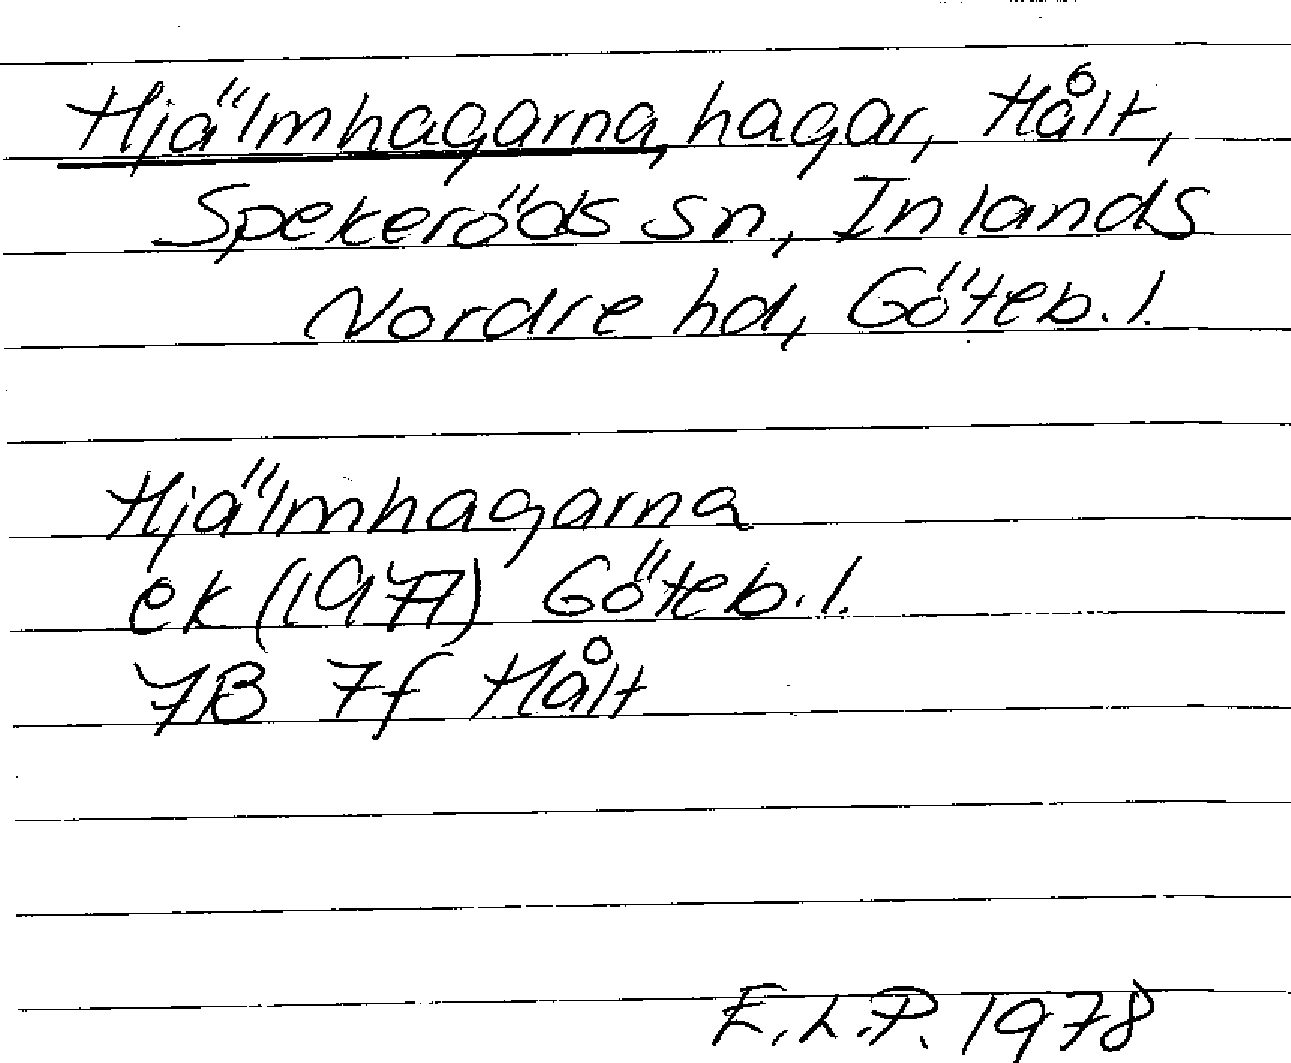 Hjälmhagarna, hagar, Hålt,
Spekeröds sn, Inlands
Nordre hd, Göteb. l.
Hjälmhagarna
ek (1977) Göteb. l.
7B 7f Hålt
E.L.P. 1978